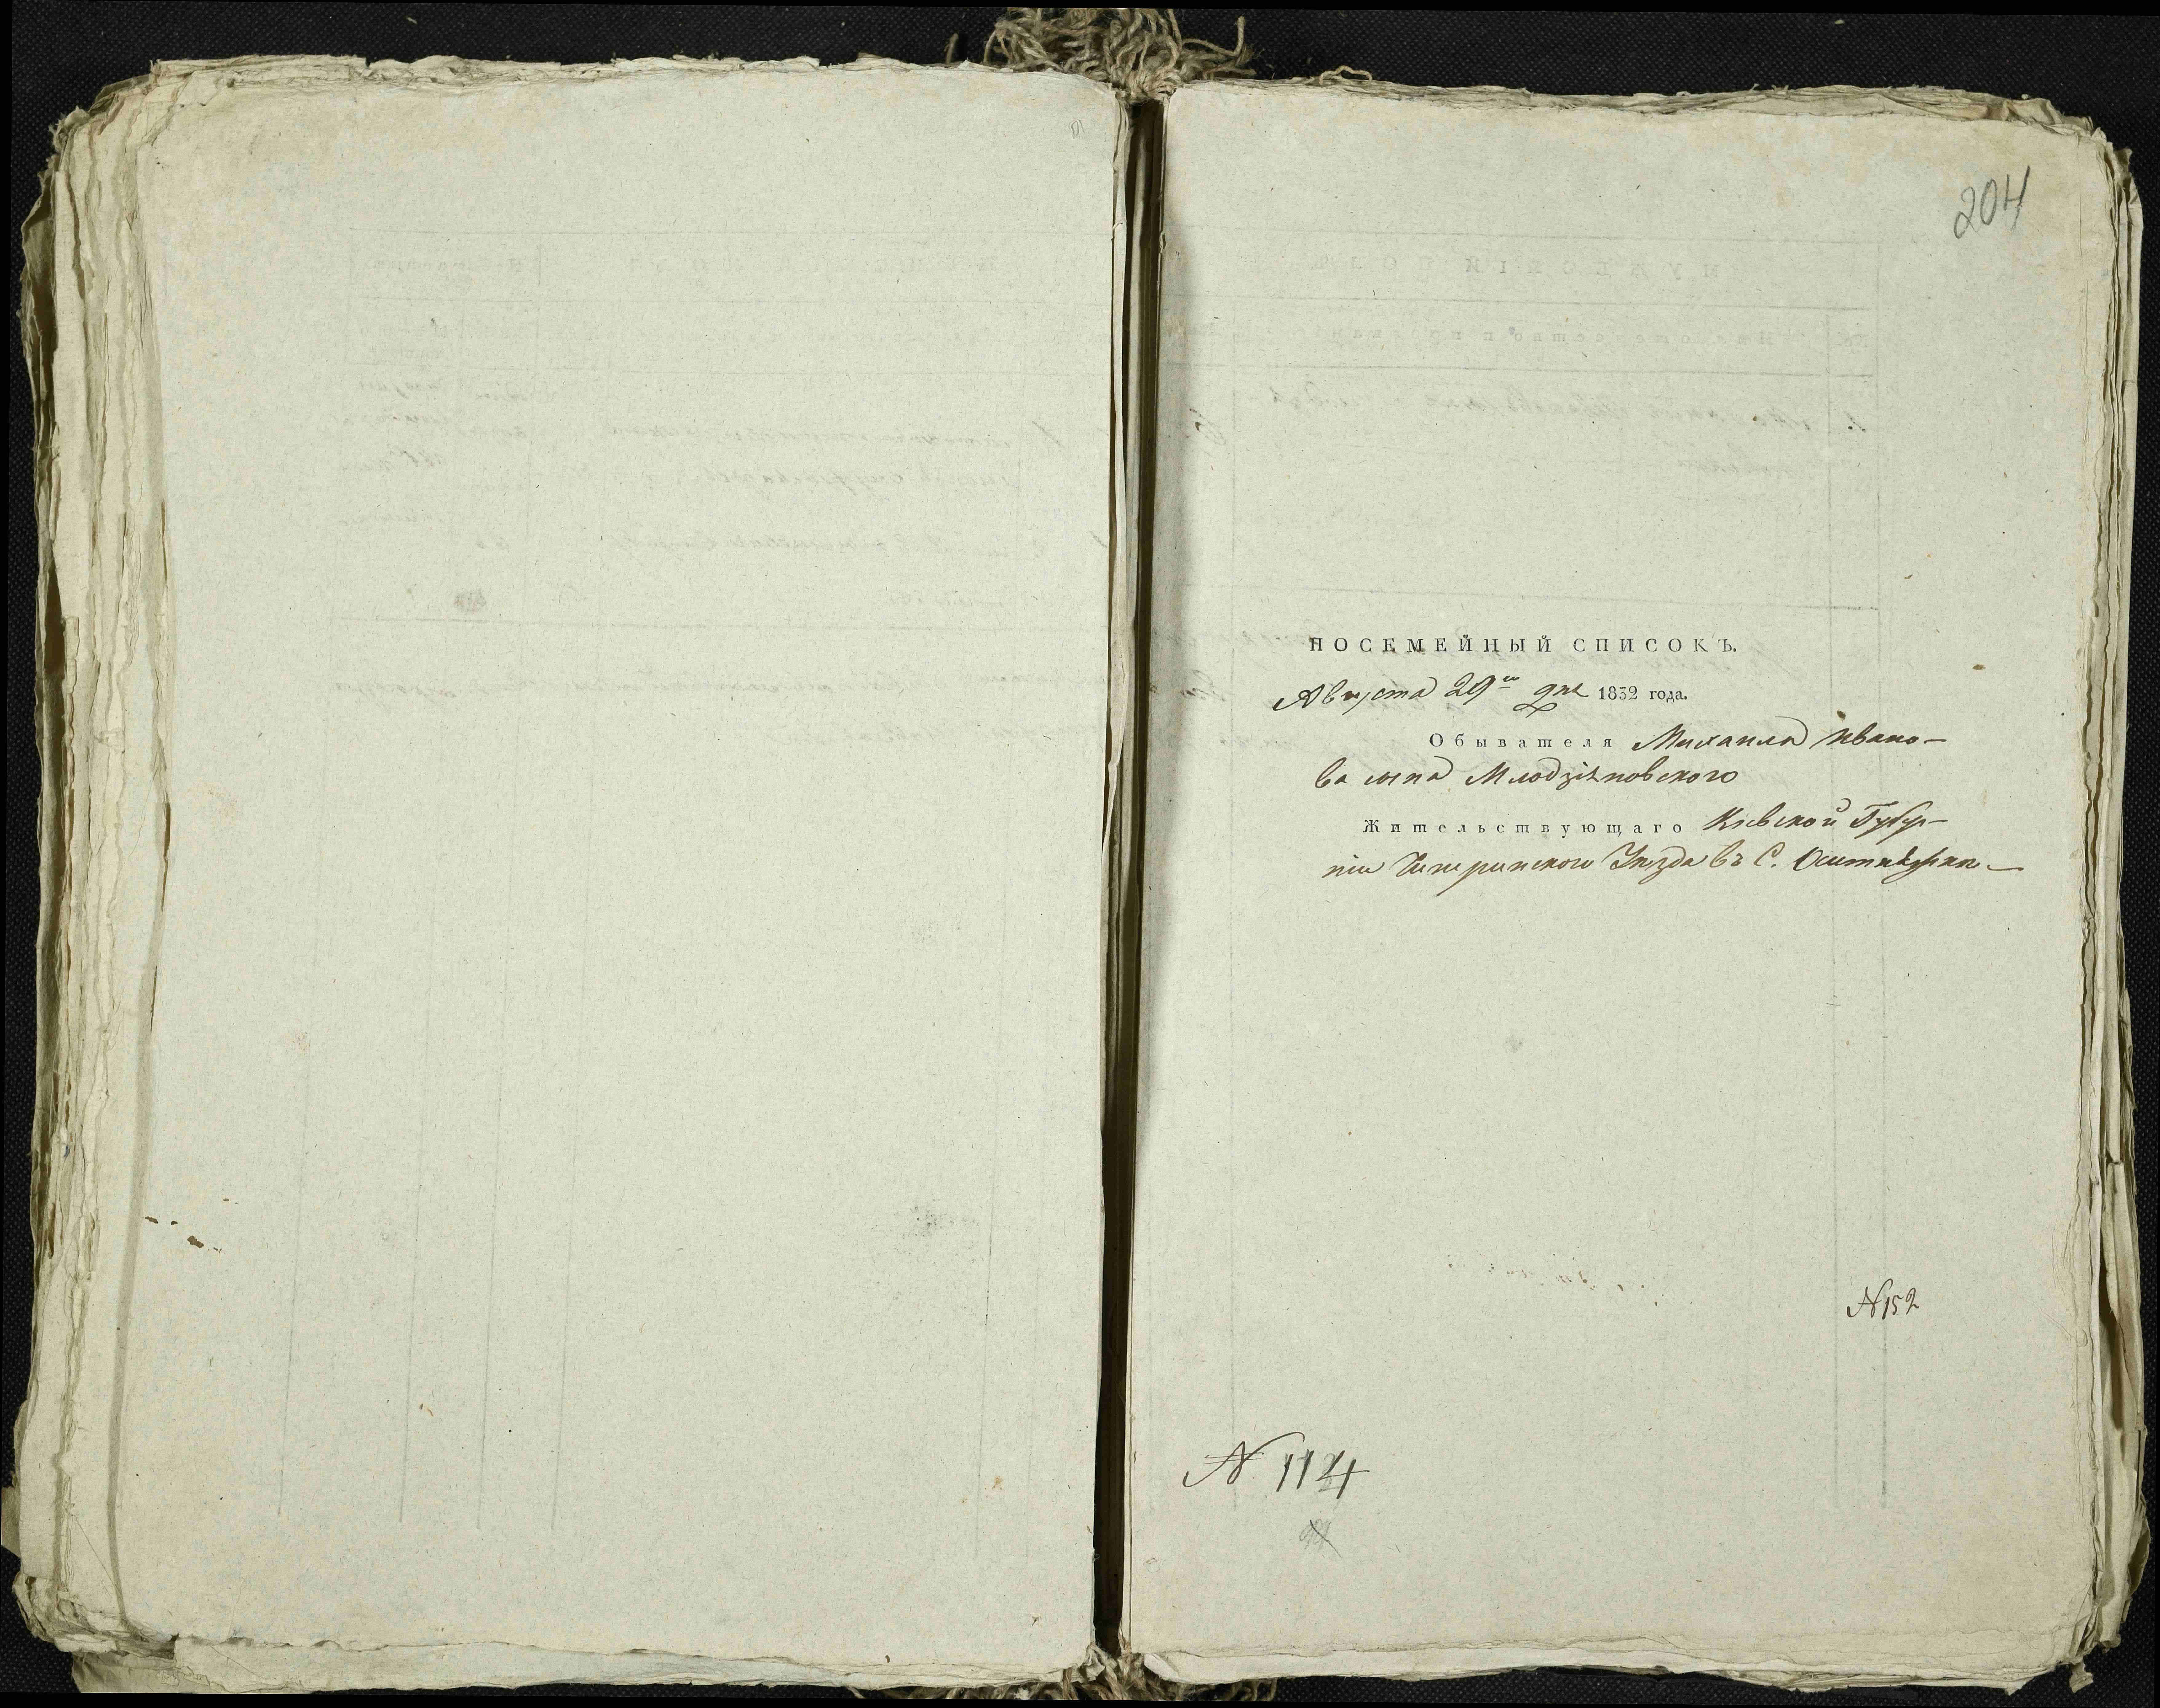 204
ПОСЕМЕЙНЫЙ СПИСОКЪ.
Августа 29го дня 1832 года.
Обывателя Михаила Ивано-
ва сына Млодзяновского
Жительствующаго Кіевской Губер-
ніи Чигиринского Уѣзда въ С.
N 152
N 114